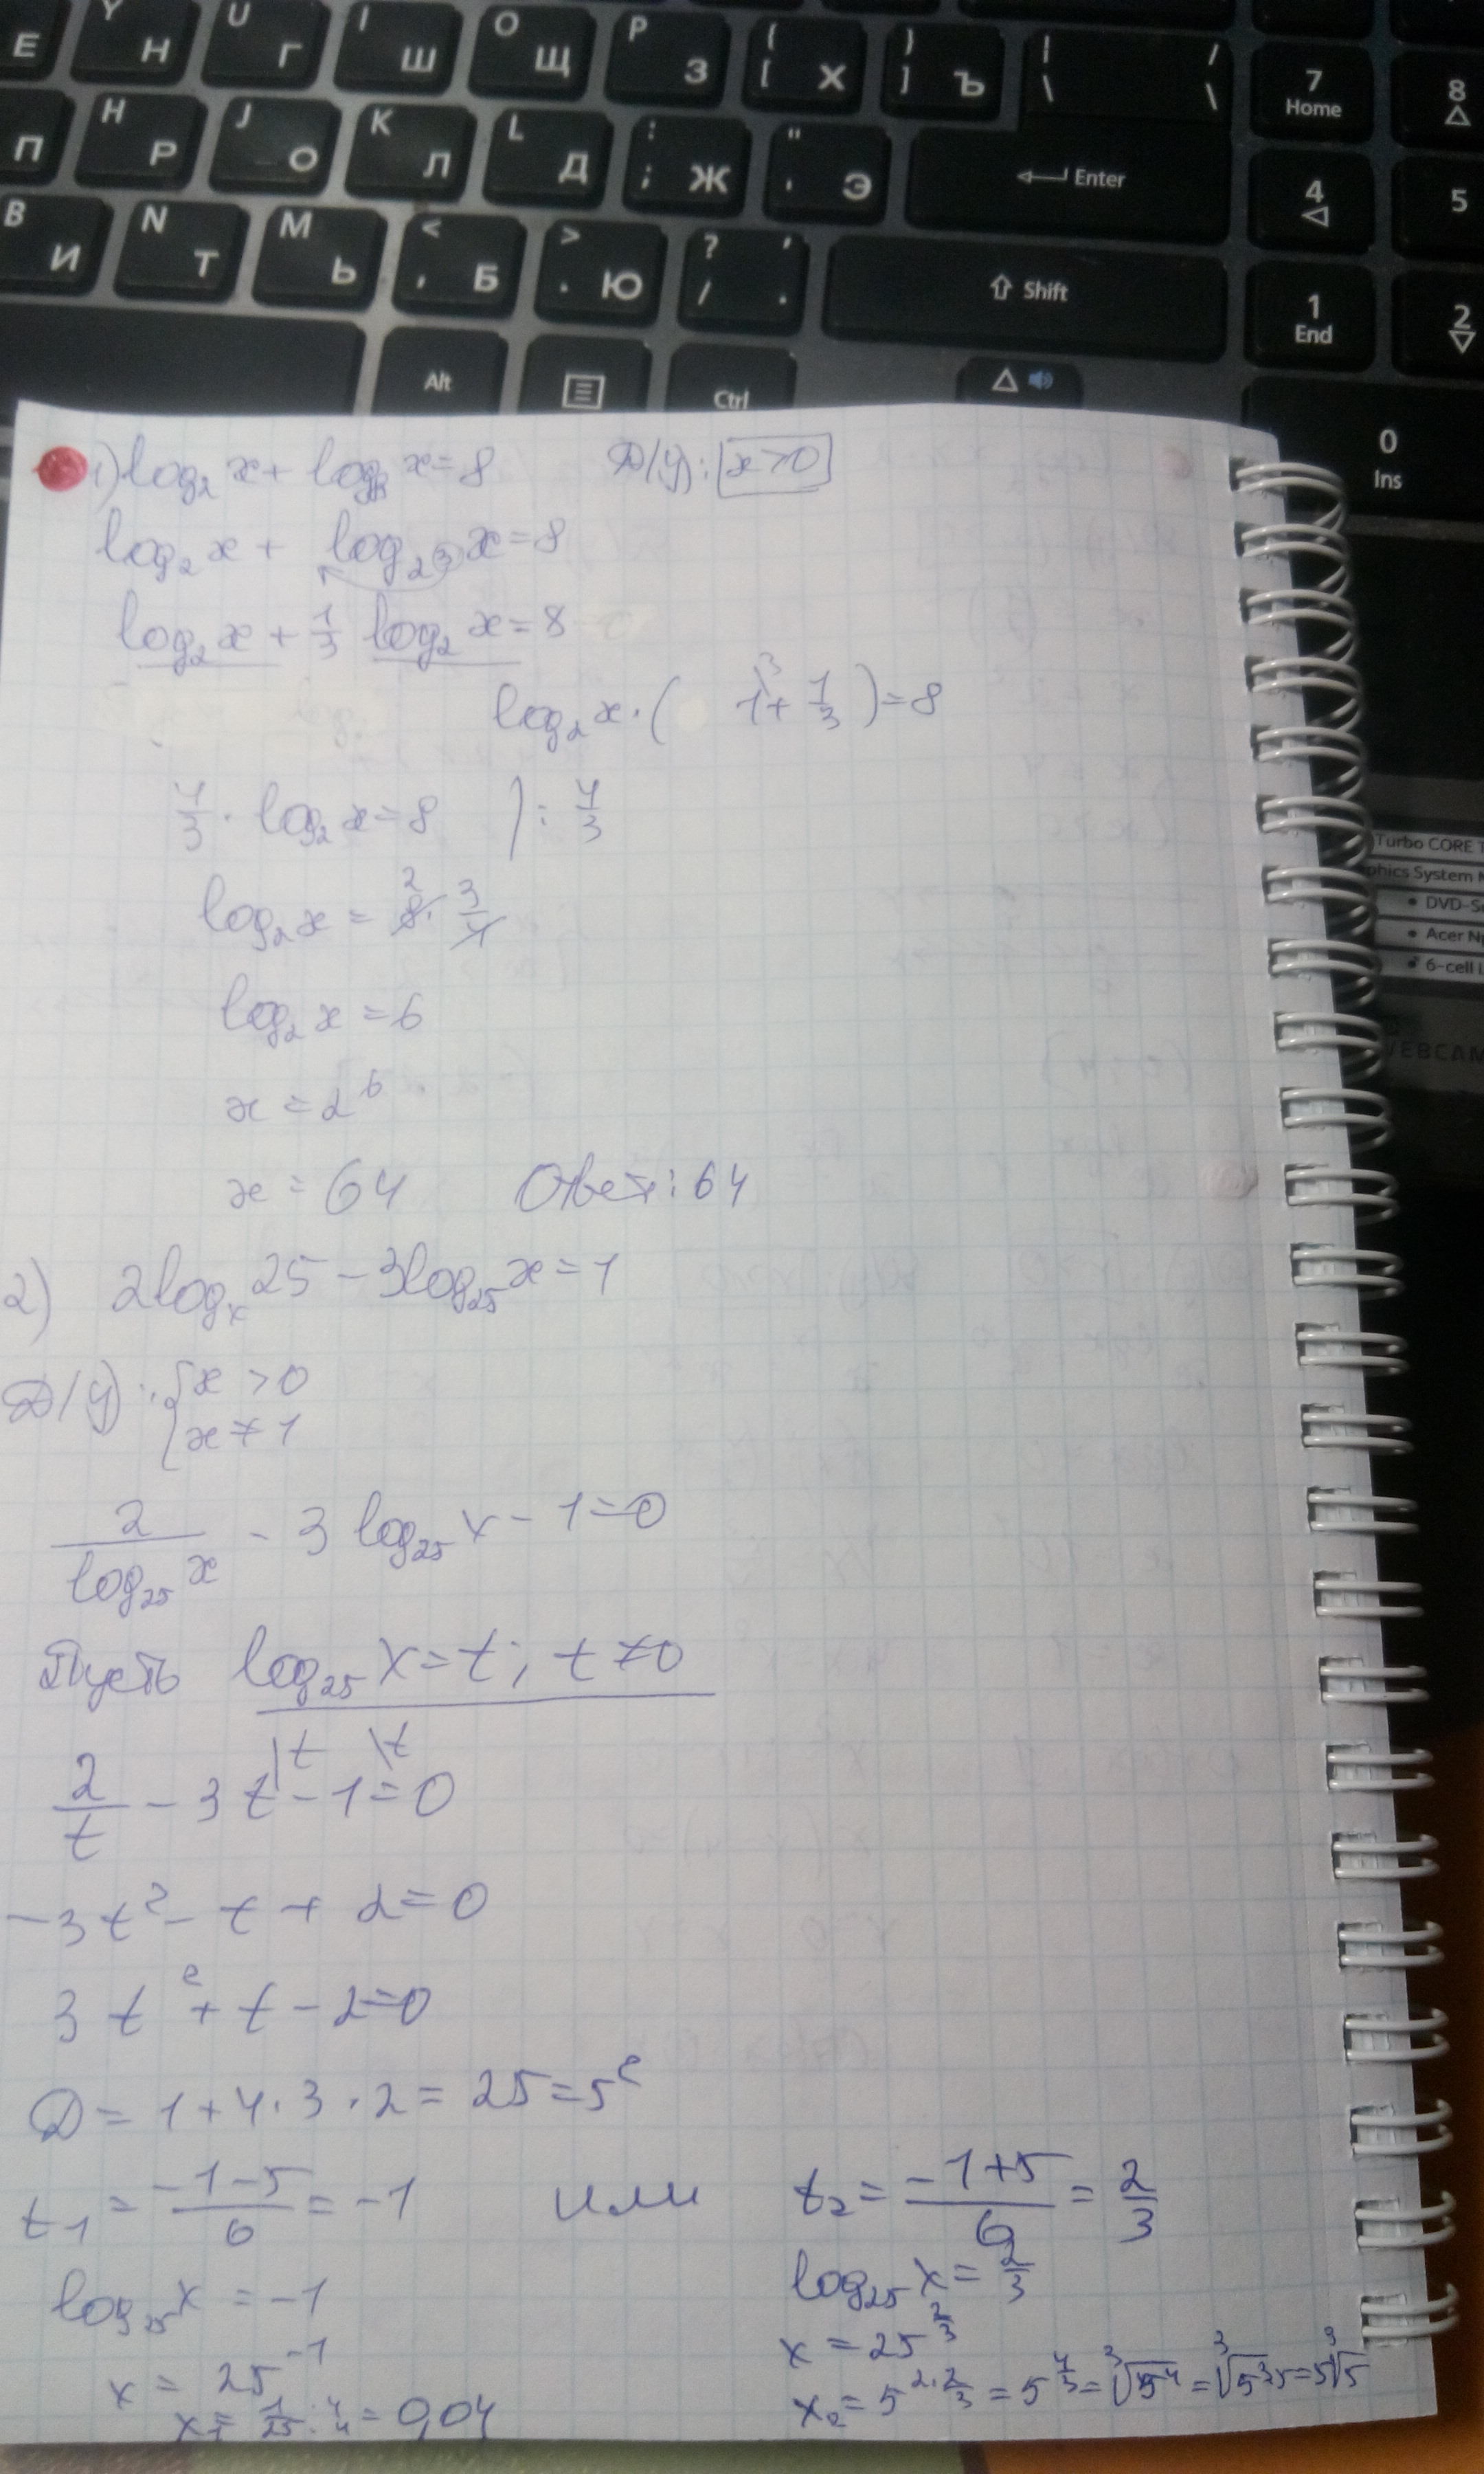 E Y Н U Г I Ш O Щ P З { [ Х } ] Ъ | \ / \ 7 Home 8
П H Р J О K Л L Д : ; Ж " ' Э Enter 4 5
B И N Т M Ь < , Б > . Ю ? / , . Shift 1 End 2
Alt Ctrl 0 Ins
Turbo CORE T
phics System M
• DVD-S
• Acer N
• 6-cell L
WEBCAM
1) log₂ x + log₈ x = 8 Д/У: x > 0
log₂ x + log₂³ x = 8
log₂ x + 1/3 log₂ x = 8
log₂ x · ( 1\³ + 1/3 ) = 8
4/3 · log₂ x = 8 | : 4/3
log₂ x = 8² · 3/4
log₂ x = 6
x = 2⁶
x = 64 Ответ: 64
2) 2logₓ 25 − 3log₂₅ x = 1
Д/У: { x > 0
x ≠ 1
2/(log₂₅ x) − 3 log₂₅ x − 1 = 0
Пусть log₂₅ x = t; t ≠ 0
2/t − 3t |t − 1 \t = 0
−3t² − t + 2 = 0
3t² + t − 2 = 0
D = 1 + 4 · 3 · 2 = 25 = 5²
t₁ = (−1−5)/6 = −1 или t₂ = (−1+5)/6 = 2/3
log₂₅ x = −1 log₂₅ x = 2/3
x = 25⁻¹ x = 25^(2/3)
x₁ = 1/25 · 4/4 = 0,04 x₂ = 5^(2·2/3) = 5^(4/3) = ³√5⁴ = ³√5³·5 = 5³√5